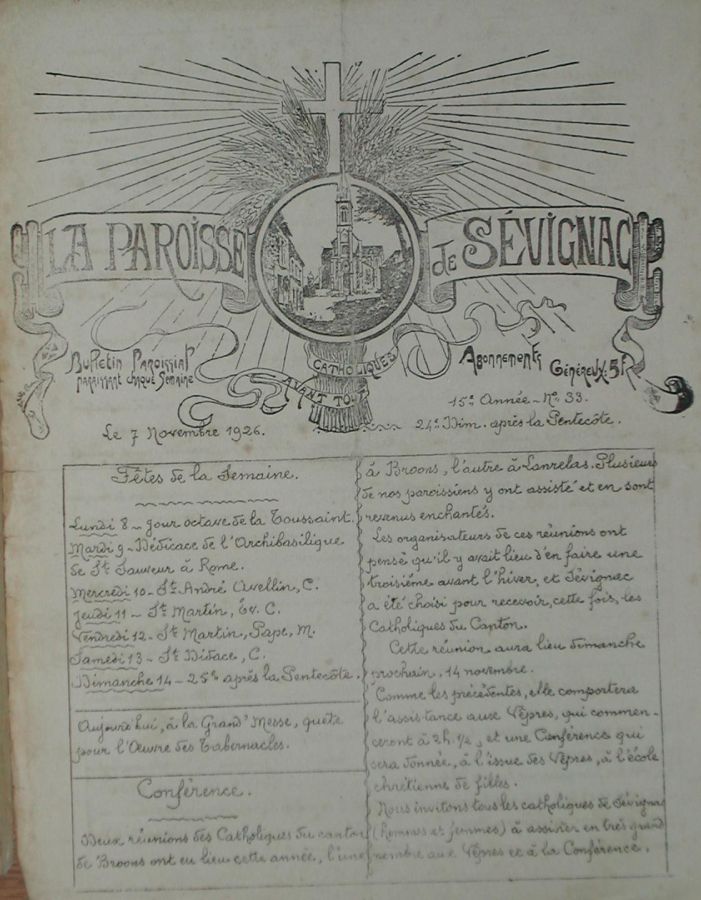 LA PAROISSE
de SÉVIGNAC
Bulletin Paroissial
paraissant chaque Semaine
CATHOLIQUES
AVANT TOUT
Abonnements
Généreux: 5f
15e Année - No 33.
Le 7 Novembre 1926.
24e Dim. après la Pentecôte.
Fêtes de la Semaine.
Lundi 8 - Jour octave de la Toussaint.
Mardi 9 - Dédicace de l'Archibasilique
de St Sauveur à Rome.
Mercredi 10 - St André Avellin, C.
Jeudi 11 - St Martin, Ev. C.
Vendredi 12 - St Martin, Pape, M.
Samedi 13 - St Didace, C.
Dimanche 14 - 25e après la Pentecôte.
Aujourd'hui, à la Grand' Messe, quête
pour l'Œuvre des Tabernacles.
Conférence.
Deux réunions des Catholiques du canton
de Broons ont eu lieu cette année, l'une
à Broons, l'autre à Lanrelas. Plusieurs
de nos paroissiens y ont assisté et en sont
revenus enchantés.
Les organisateurs de ces réunions ont
pensé qu'il y avait lieu d'en faire une
troisième avant l'hiver, et Sévignac
a été choisi pour recevoir, cette fois, les
Catholiques du Canton.
Cette réunion aura lieu dimanche
prochain, 14 novembre.
Comme les précédentes, elle comportera
l'assistance aux Vêpres, qui commen-
ceront à 2h. 1/2, et une Conférence qui
sera donnée, à l'issue des Vêpres, à l'école
chrétienne de filles.
Nous invitons tous les catholiques de Sévignac
(hommes et femmes) à assister en très grand
nombre aux Vêpres et à la Conférence.